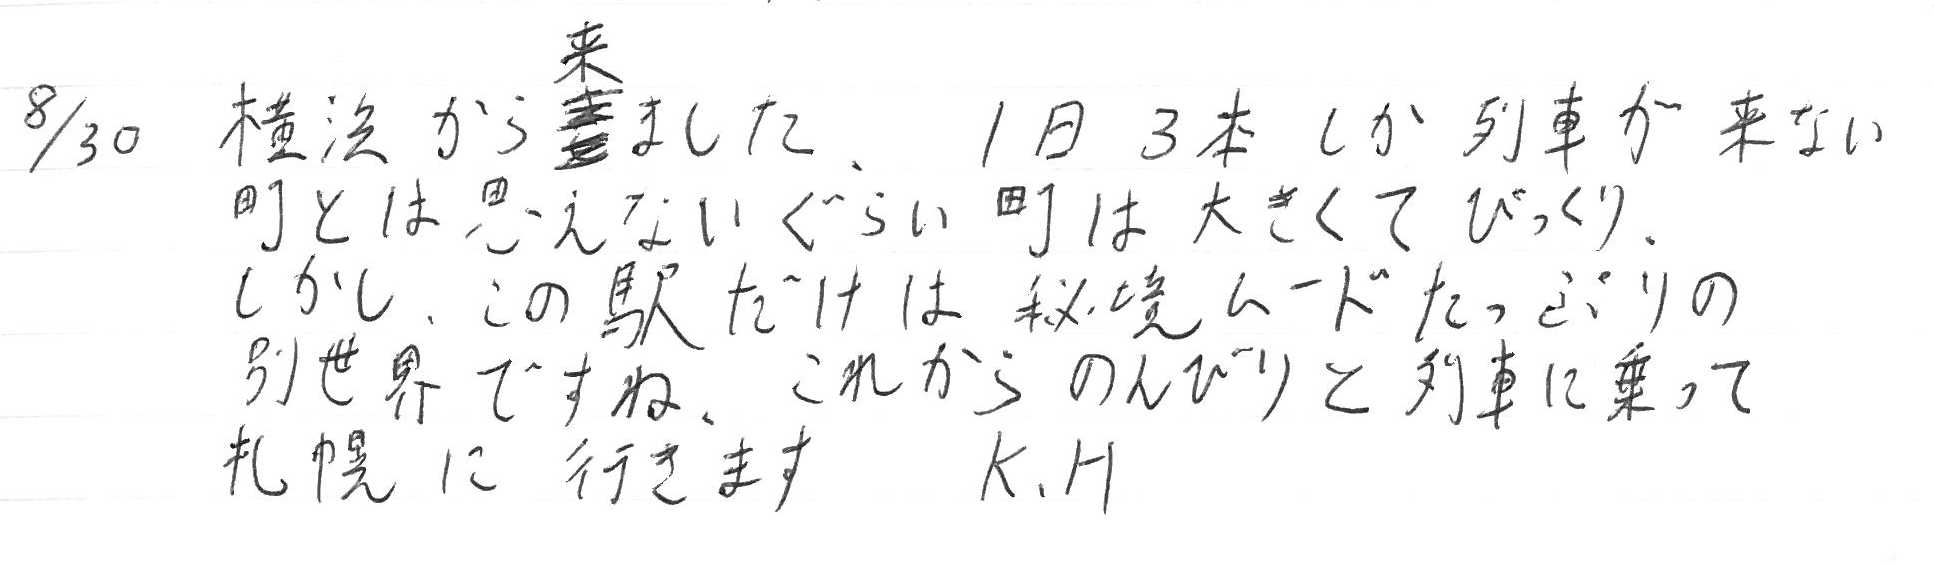 8/30 横浜から来ました、 1日3本しか列車が来ない
町とは思えないぐらい町は大きくてびっくり、
しかし、この駅だけは秘境ムードたっぷりの
別世界ですね、これからのんびりと列車に乗って
札幌に行きます K.H